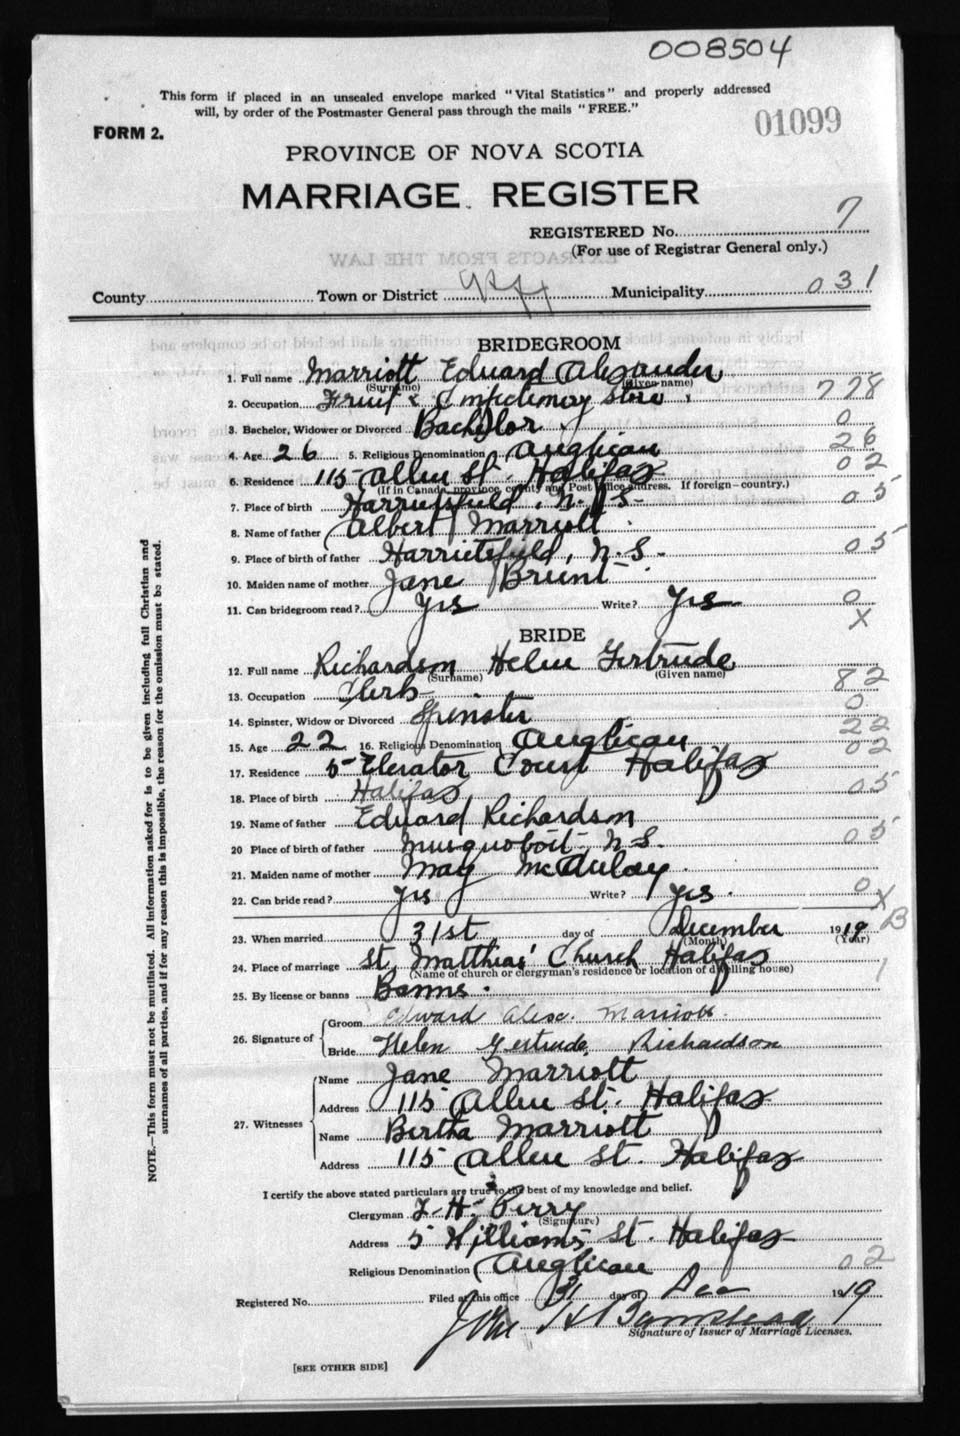 008504
This form if placed in an unsealed envelope marked "Vital Statistics" and properly addressed
will, by order of the Postmaster General pass through the mails "FREE."
FORM 2.
01099
PROVINCE OF NOVA SCOTIA
MARRIAGE REGISTER
REGISTERED No. 7
(For use of Registrar General only.)
EXTRACTS FROM THE LAW
County Town or District Hfx Municipality 031
BRIDEGROOM
1. Full name Marriott Edward Alexander
(Surname) (Given name)
2. Occupation Fruit & Confectionery Store 778
3. Bachelor, Widower or Divorced Bachelor 0
4. Age 26 5. Religious Denomination Anglican 26
6. Residence 115 Allen St. Halifax 02
(If in Canada, province, county and Post Office address. If foreign—country.)
7. Place of birth Harrietsfield, N.S. 05
8. Name of father Albert Marriott
9. Place of birth of father Harrietsfield, N.S. 05
10. Maiden name of mother Jane Brunt
11. Can bridegroom read? Yes Write? Yes 0
X
BRIDE
12. Full name Richardson Helen Gertrude
(Surname) (Given name)
13. Occupation Clerk 82
14. Spinster, Widow or Divorced Spinster 0
15. Age 22 16. Religious Denomination Anglican 22
17. Residence 5 Elevator Court Halifax 02
18. Place of birth Halifax 05
19. Name of father Edward Richardson
20 Place of birth of father Musquoboit, N.S. 05
21. Maiden name of mother May McAulay
22. Can bride read? Yes Write? Yes 0
X
B
23. When married 31st day of December 1919
(Month) (Year)
24. Place of marriage St. Matthias' Church Halifax 1
(Name of church or clergyman's residence or location of dwelling house)
25. By license or banns Banns
26. Signature of Groom Edward Alex. Marriott
Bride Helen Gertrude Richardson
27. Witnesses Name Jane Marriott
Address 115 Allen St. Halifax
Name Bertha Marriott
Address 115 Allen St. Halifax
I certify the above stated particulars are true to the best of my knowledge and belief.
Clergyman T. H. Perry
(Signature)
Address 5 Williams St. Halifax
Religious Denomination Anglican 02
Registered No. Filed at this office 31 day of Dec 1919
John H Barnstead
Signature of Issuer of Marriage Licenses.
[SEE OTHER SIDE]
NOTE.—This form must not be mutilated. All information asked for is to be given including full Christian and
surnames of all parties, and if for any reason this is impossible, the reason for the omission must be stated.